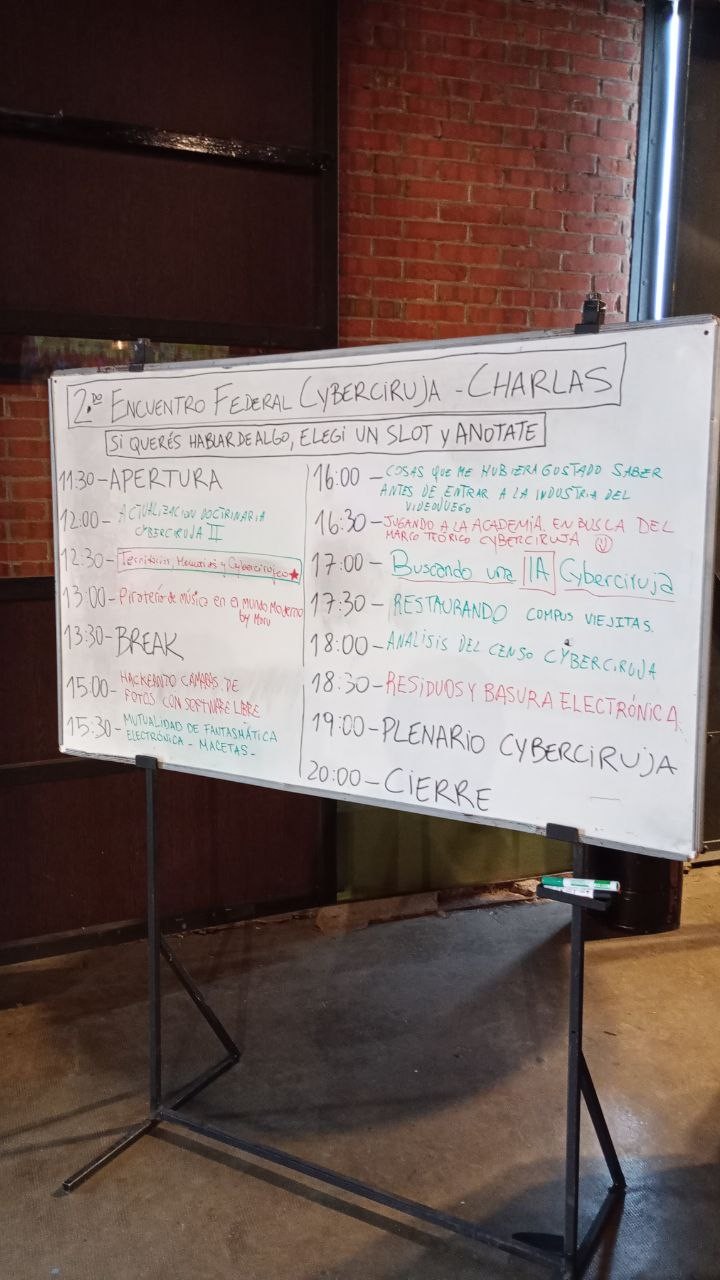 2.do ENCUENTRO FEDERAL CYBERCIRUJA - CHARLAS
SI QUERÉS HABLAR DE ALGO, ELEGI UN SLOT y ANOTATE
11:30 - APERTURA
12:00 - ACTUALIZACION DOCTRINARIA
CYBERCIRUJA II
12:30 - Territorios, Memorias y
13:00 - Piratería de música en el mundo moderno
by Moru
13:30 - BREAK
15:00 - HACKEANDO CAMARAS DE
FOTOS CON SOFTWARE LIBRE
15:30 - MUTUALIDAD DE FANTASMÁTICA
ELECTRÓNICA - MACETAS -
16:00 - COSAS QUE ME HUBIERA GUSTADO SABER
ANTES DE ENTRAR A LA INDUSTRIA DEL
VIDEOJUEGO
16:30 - JUGANDO A LA ACADEMIA. EN BUSCA DEL
MARCO TEÓRICO CYBERCIRUJA
17:00 - Buscando una IA Cyberciruja
17:30 - RESTAURANDO COMPUS VIEJITAS.
18:00 - ANALISIS DEL CENSO CYBERCIRUJA
18:30 - RESIDUOS Y BASURA ELECTRÓNICA
19:00 - PLENARIO CYBERCIRUJA
20:00 - CIERRE